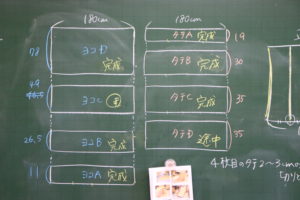 180cm
78
ヨコD
完成
49
ヨコC
26.5
ヨコB
完成
11
ヨコA
完成
180cm
タテA 完成
19
タテB
完成
30
タテC
完成
35
タテD
途中
35
4枚目のタテ2~3cm